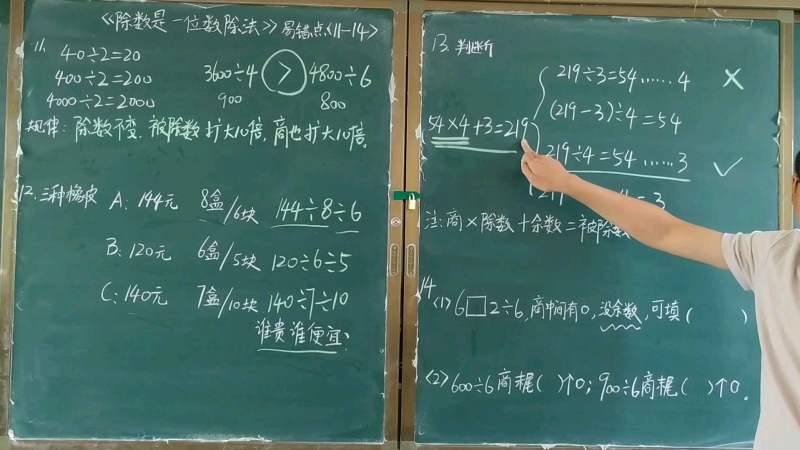 《除数是一位数除法》易错点<11-14>
11. 40÷2=20
400÷2=200
4000÷2=2000
3600÷4 > 4800÷6
900 800
规律：除数不变，被除数扩大10倍，商也扩大10倍。
12. 三种橡皮 A：144元 8盒/6块 144÷8÷6
B：120元 6盒/5块 120÷6÷5
C：140元 7盒/10块 140÷7÷10
谁贵谁便宜？
13. 判断
54×4+3=219
219÷3=54……4 ×
(219-3)÷4=54
219÷4=54……3 ✓
219 4=3
注：商×除数+余数=被除数
14.
<1> 6□2÷6，商中间有0，没余数，可填（ ）
<2> 600÷6商末尾（ ）个0；900÷6商末尾（ ）个0。